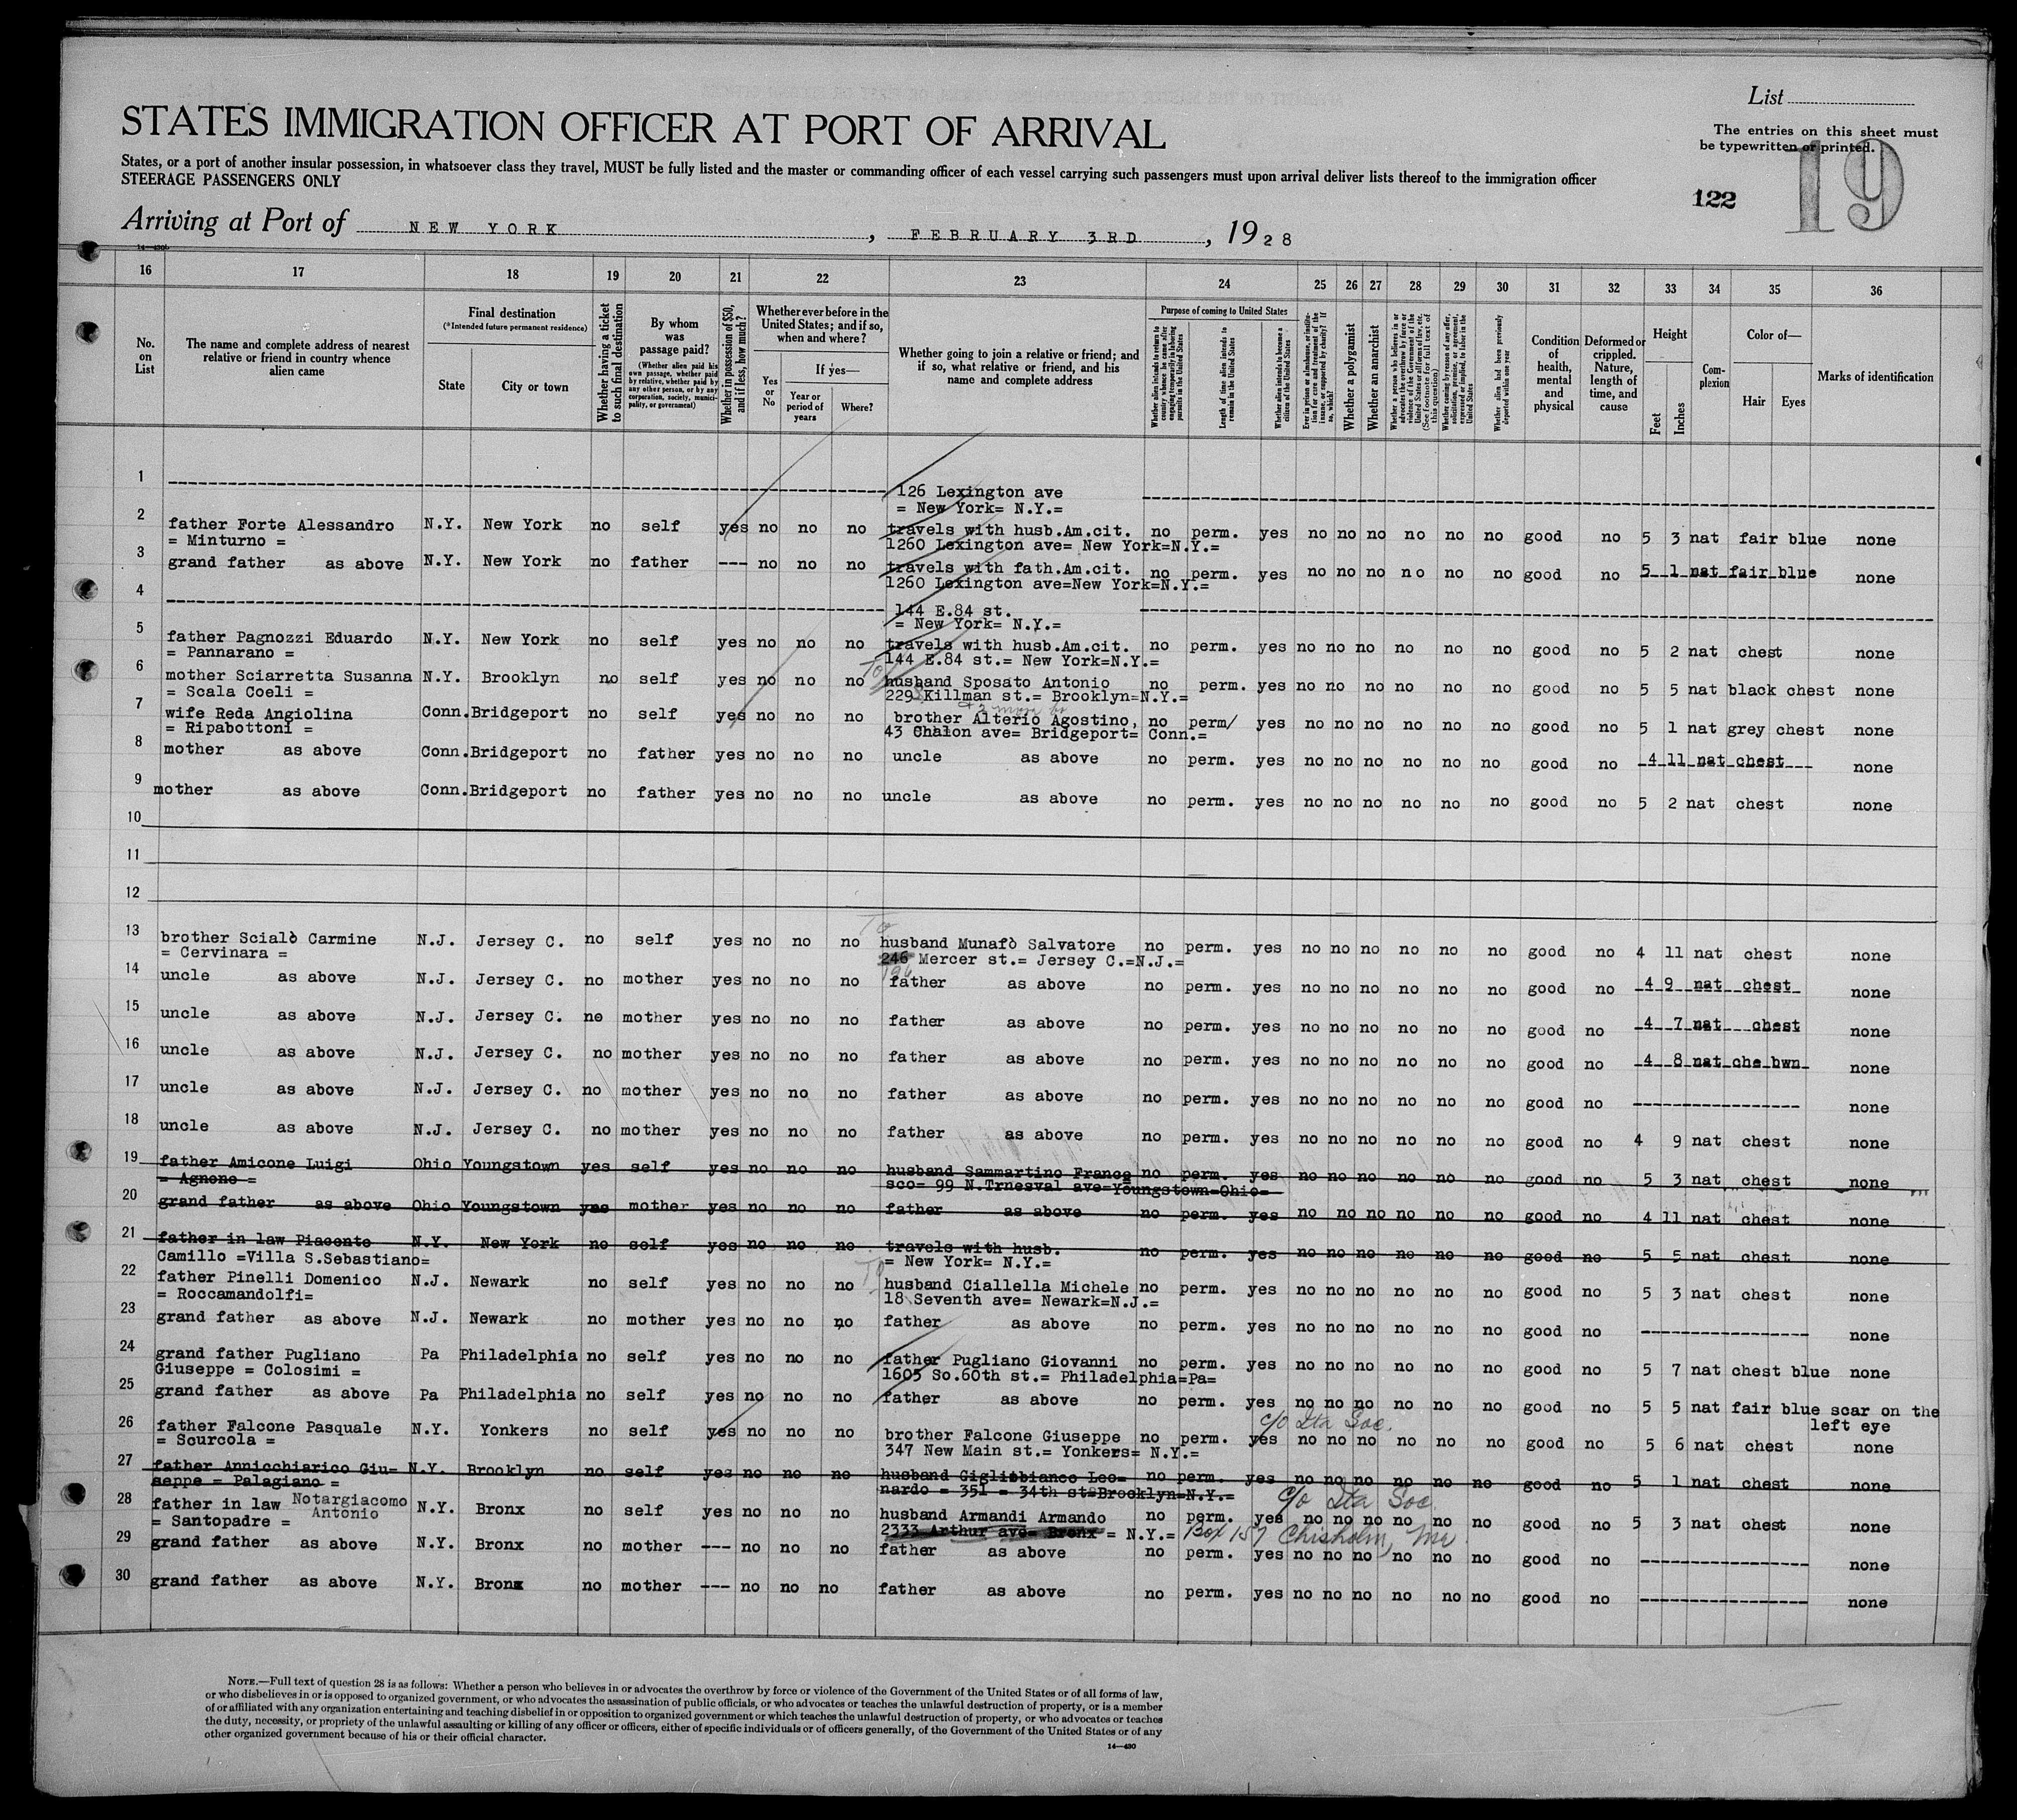 List
STATES IMMIGRATION OFFICER AT PORT OF ARRIVAL
The entries on this sheet must
be typewritten or printed.
19
States, or a port of another insular possession, in whatsoever class they travel, MUST be fully listed and the master or commanding officer of each vessel carrying such passengers must upon arrival deliver lists thereof to the immigration officer
STEERAGE PASSENGERS ONLY
122
Arriving at Port of NEW YORK, FEBRUARY 3RD, 1928
16 17 18 19 20 21 22 23 24 25 26 27 28 29 30 31 32 33 34 35 36
No. on List
The name and complete address of nearest relative or friend in country whence alien came
Final destination
(*Intended future permanent residence)
State
City or town
Whether having a ticket to such final destination
By whom was passage paid?
(Whether alien paid his own passage, whether paid by relative, whether paid by any other person, or by any corporation, society, municipality, or government)
Whether in possession of $50, and if less, how much?
Whether ever before in the United States; and if so, when and where?
Yes or No
If yes—
Year or period of years
Where?
Whether going to join a relative or friend; and if so, what relative or friend, and his name and complete address
Purpose of coming to United States
Whether alien intends to return to country whence he came after engaging temporarily in laboring pursuits in the United States
Length of time alien intends to remain in the United States
Whether alien intends to become a citizen of the United States
Ever in prison or almshouse, or institution for care and treatment of the insane, or supported by charity? If so, which?
Whether a polygamist
Whether an anarchist
Whether a person who believes in or advocates the overthrow by force or violence of the Government of the United States or all forms of law, etc. (See footnote for full text of this question)
Whether coming by reason of any offer, solicitation, promise, or agreement, expressed or implied, to labor in the United States
Whether alien had been previously deported within one year
Condition of health, mental and physical
Deformed or crippled. Nature, length of time, and cause
Height
Feet
Inches
Complexion
Color of—
Hair
Eyes
Marks of identification
1 126 Lexington ave
= New York= N.Y.=
2 father Forte Alessandro N.Y. New York no self yes no no no travels with husb.Am.cit. no perm. yes no no no no no no good no 5 3 nat fair blue none
= Minturno = 1260 Lexington ave= New York=N.Y.=
3 grand father as above N.Y. New York no father --- no no no travels with fath.Am.cit. no perm. yes no no no no no no good no 5 1 nat fair blue none
1260 Lexington ave=New York=N.Y.=
4 144 E.84 st.
= New York= N.Y.=
5 father Pagnozzi Eduardo N.Y. New York no self yes no no no travels with husb.Am.cit. no perm. yes no no no no no no good no 5 2 nat chest none
= Pannarano = 144 E.84 st.= New York=N.Y.=
6 mother Sciarretta Susanna N.Y. Brooklyn no self yes no no no To husband Sposato Antonio no perm. yes no no no no no no good no 5 5 nat black chest none
= Scala Coeli = 229 Killman st.= Brooklyn=N.Y.=
7 wife Reda Angiolina Conn. Bridgeport no self yes no no no brother Alterio Agostino, no perm/ yes no no no no no no good no 5 1 nat grey chest none
= Ripabottoni = 43 Chalon ave= Bridgeport= Conn.=
8 mother as above Conn. Bridgeport no father yes no no no uncle as above no perm. yes no no no no no no good no 4 11 nat chest none
9 mother as above Conn. Bridgeport no father yes no no no uncle as above no perm. yes no no no no no no good no 5 2 nat chest none
10
11
12
13 brother Scialò Carmine N.J. Jersey C. no self yes no no no To husband Munafò Salvatore no perm. yes no no no no no no good no 4 11 nat chest none
= Cervinara = 246 Mercer st.= Jersey C.=N.J.=
14 uncle as above N.J. Jersey C. no mother yes no no no father as above no perm. yes no no no no no no good no 4 9 nat chest none
15 uncle as above N.J. Jersey C. no mother yes no no no father as above no perm. yes no no no no no no good no 4 7 nat chest none
16 uncle as above N.J. Jersey C. no mother yes no no no father as above no perm. yes no no no no no no good no 4 8 nat che bwn none
17 uncle as above N.J. Jersey C. no mother yes no no no father as above no perm. yes no no no no no no good no none
18 uncle as above N.J. Jersey C. no mother yes no no no father as above no perm. yes no no no no no no good no 4 9 nat chest none
19 father Amicone Luigi Ohio Youngstown yes self yes no no no husband Sammartino France no perm. yes no no no no no no good no 5 3 nat chest none
= Agnone = sco- 99 N.Trnesval ave=Youngstown=Ohio=
20 grand father as above Ohio Youngstown yes mother yes no no no father as above no perm. yes no no no no no no good no 4 11 nat chest none
21 father in law Piacente N.Y. New York no self yes no no no travels with husb. no perm. yes no no no no no no good no 5 5 nat chest none
Camillo =Villa S.Sebastiano= = New York= N.Y.=
22 father Pinelli Domenico N.J. Newark no self yes no no no To husband Ciallella Michele no perm. yes no no no no no no good no 5 3 nat chest none
= Roccamandolfi= 18 Seventh ave= Newark=N.J.=
23 grand father as above N.J. Newark no mother yes no no no father as above no perm. yes no no no no no no good no none
24 grand father Pugliano Pa Philadelphia no self yes no no no father Pugliano Giovanni no perm. yes no no no no no no good no 5 7 nat chest blue none
Giuseppe = Colosimi = 1605 So.60th st.= Philadelphia=Pa=
25 grand father as above Pa Philadelphia no self yes no no no father as above no perm. yes no no no no no no good no 5 5 nat fair blue scar on the
left eye
c/o Ita Soc.
26 father Falcone Pasquale N.Y. Yonkers no self yes no no no brother Falcone Giuseppe no perm. yes no no no no no no good no 5 6 nat chest none
= Scurcola = 347 New Main st.= Yonkers= N.Y.=
27 father Annicchiarico Giu= N.Y. Brooklyn no self yes no no no husband Gigliobianco Leo= no perm. yes no no no no no no good no 5 1 nat chest none
seppe = Palagiano = nardo = 351 = 34th st=Brooklyn=N.Y.=
c/o Ita Soc.
28 father in law Notargiacomo Antonio N.Y. Bronx no self yes no no no husband Armandi Armando no perm. yes no no no no no no good no 5 3 nat chest none
= Santopadre = 2333 Arthur ave= Bronx = N.Y.= Box 157 Chisholm, Me
29 grand father as above N.Y. Bronx no mother --- no no no father as above no perm. yes no no no no no no good no none
30 grand father as above N.Y. Bronx no mother --- no no no father as above no perm. yes no no no no no no good no none
NOTE.—Full text of question 28 is as follows: Whether a person who believes in or advocates the overthrow by force or violence of the Government of the United States or of all forms of law,
or who disbelieves in or is opposed to organized government, or who advocates the assassination of public officials, or who advocates or teaches the unlawful destruction of property, or is a member
of or affiliated with any organization entertaining and teaching disbelief in or opposition to organized government or which teaches the unlawful destruction of property, or who advocates or teaches
the duty, necessity, or propriety of the unlawful assaulting or killing of any officer or officers, either of specific individuals or of officers generally, of the Government of the United States or of any
other organized government because of his or their official character.
14—430